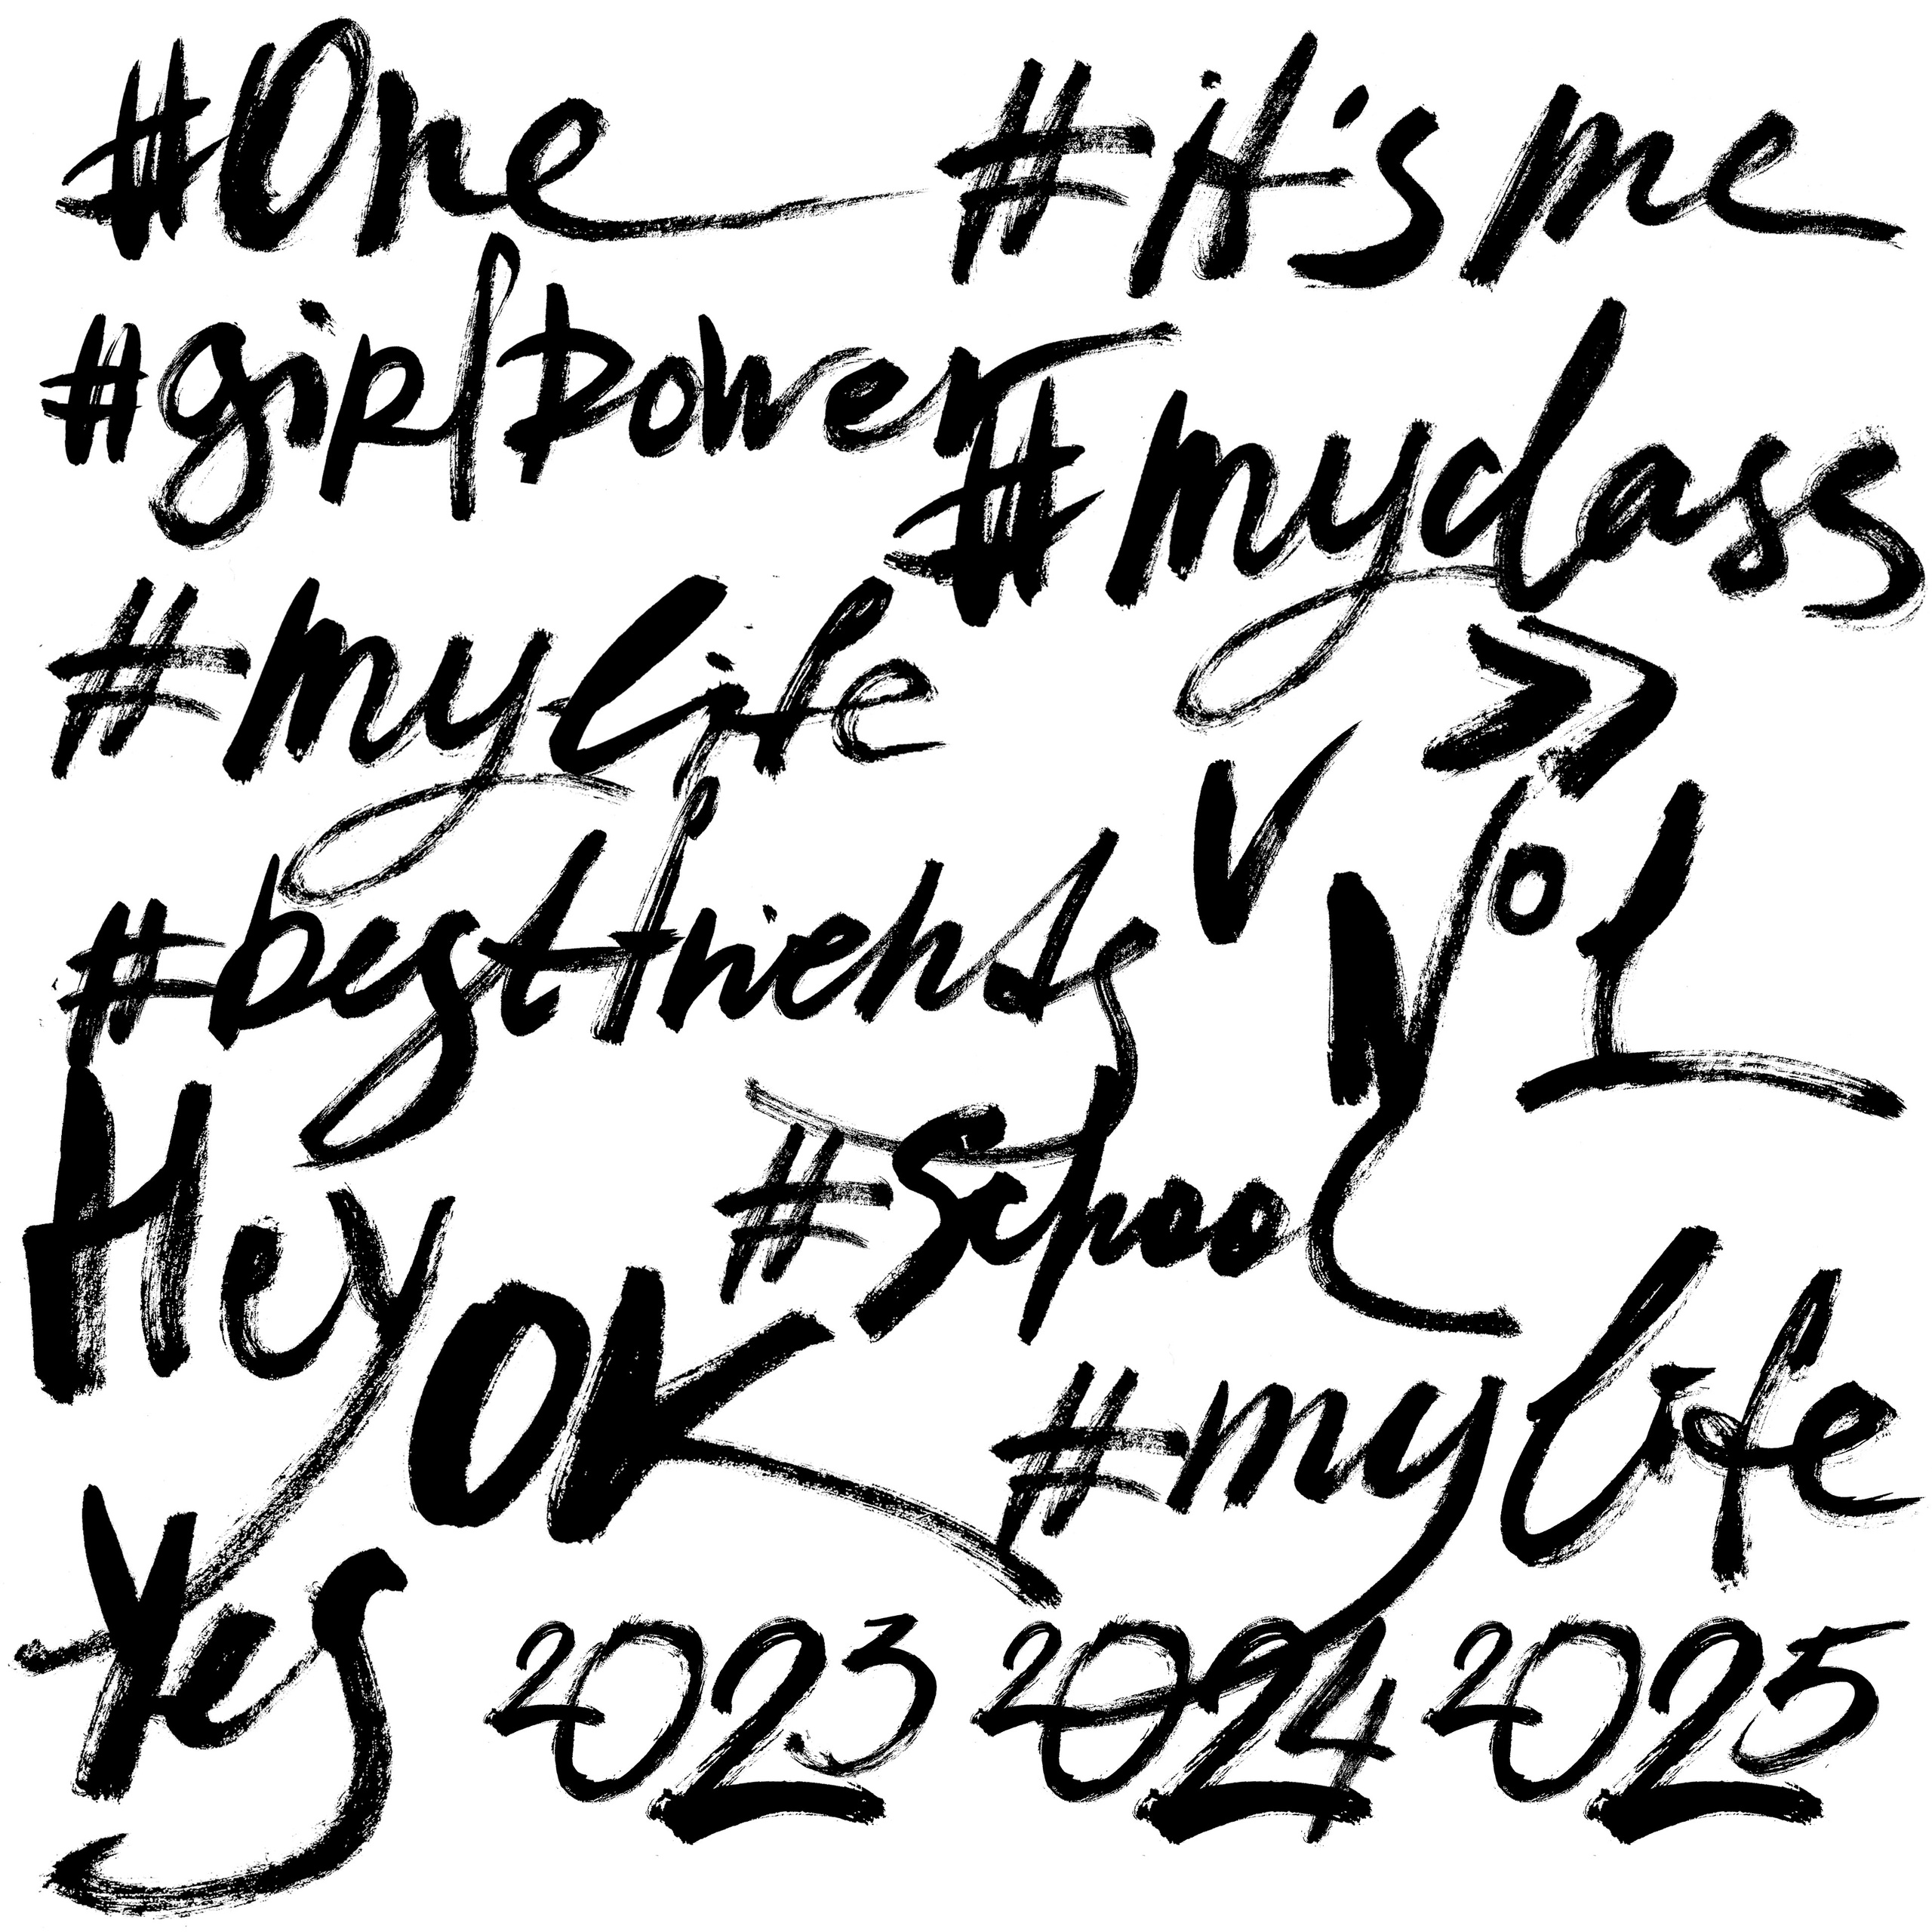 #One
#it's me
#girlpower
#myclass
#mylife
>>
V
N°1
#bestfriends
Hey
#School
OK
#mylife
Yes
2023
2024
2025